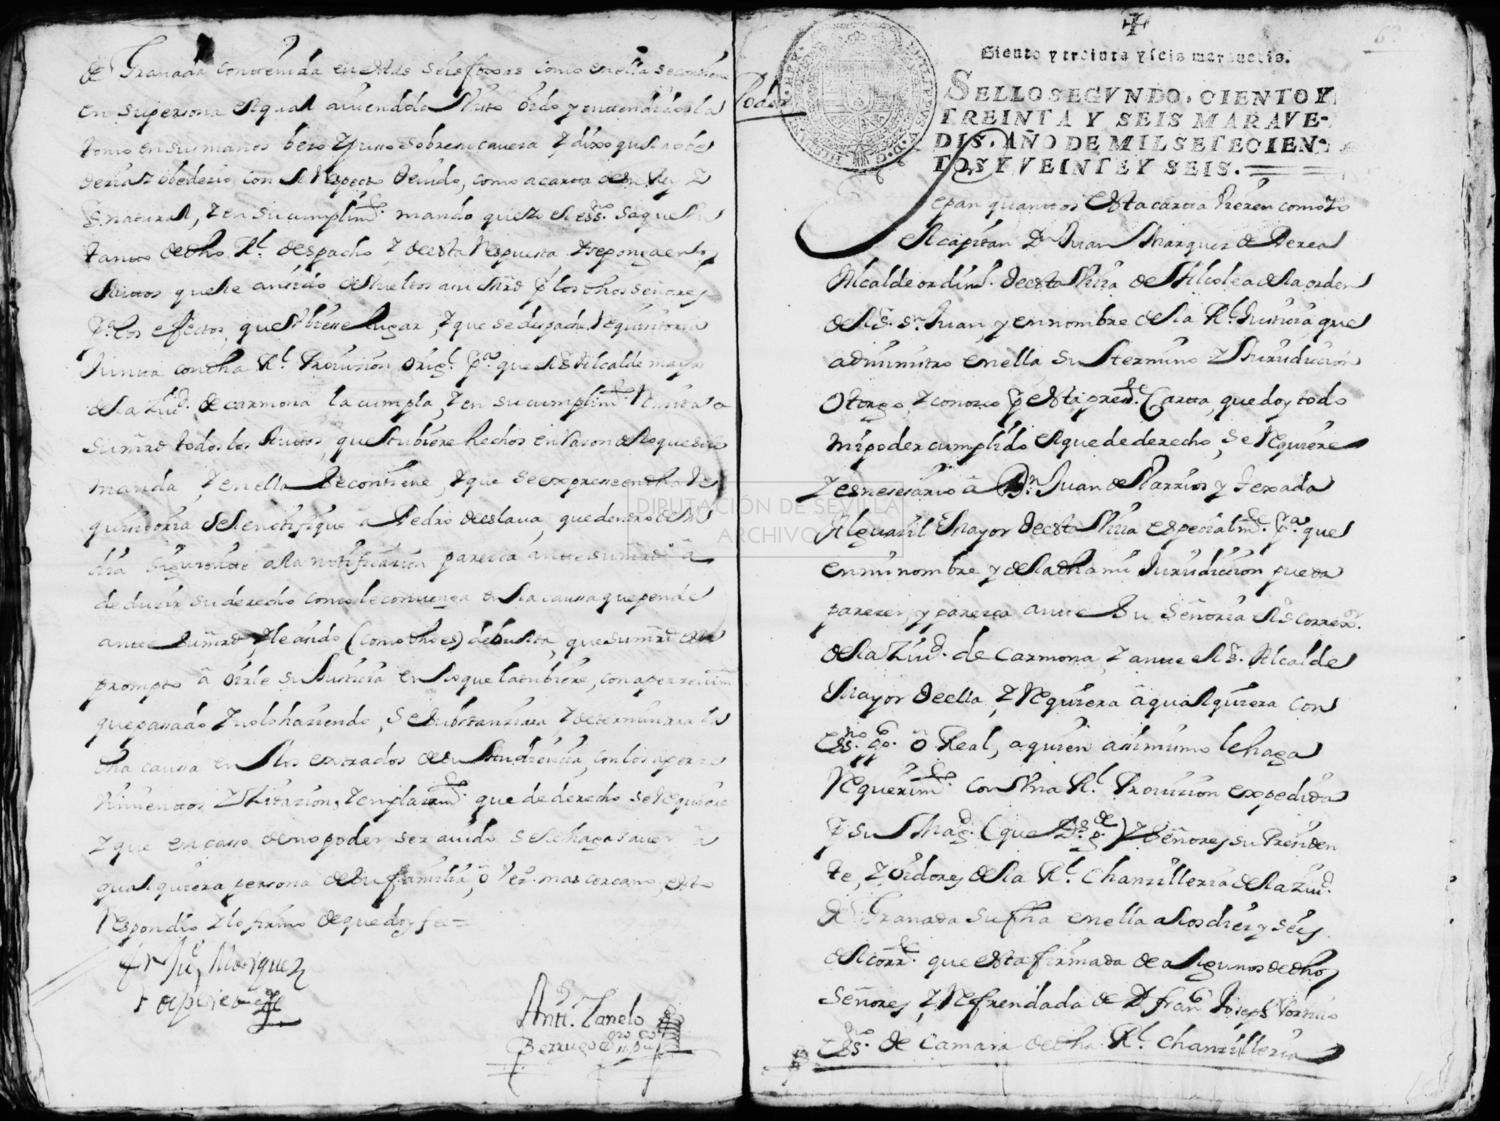 de Granada contenida en estas seis foxas como en ella se contiene
en su persona el qual aviendola visto oido y entendido la
tomo en sus manos beso y puso sobre su caveza y dixo que la obe
deria obederio con el respecto devido, como a carta de su Rey y
Sr. natural, y en su cumplimto. mando que yo el essno. saque un
tanto de dho Rl. despacho y de esta respuesta y se ponga en los
Auttos que se an devueltos a su mrd pr. los dhos señores
pa. los efectos, que ubiere lugar, y que se despache requisitoria
Junta con dha Rl. Provision orign. pa. que el Sr. Alcalde mayor
de la Ziud. de carmona la cumpla, y en su cumplimto. Remita a
su mrd todos los Auttos que ubiere hechos en razon de lo que se le
manda, y en ella se contiene, y que se exprese en dha Re
quisitoria se le notifique a Pedro de eslava, que dentro de
dia siguiente a la notificazion parezca ante su mrd â
deduzir su derecho como le convenga en la causa que pende
ante su mrd y le a sido (como dho es) debuelta, que su mrd esta
prompto â oirle su Justicia en lo que la tubiere, con apercevimto
que pasado y no lo haziendo, se substanziara, y determinara la
dha causa en los extrados de su Audiencia, con los aperze
vimientos y zitazion, y emplazamto. que de derecho se requiere
y que en caso de no poder ser avido se le haga saver â
qualquiera persona de su familia, ô vezo. mas cercano, esto
Respondio y lo firmo de que doy fee =
Fr Ju. Marquez
de perea
Antto. Zanelo
Berrugo
Poder
Siento y treinta y seis maravedis.
SELLO SEGVNDO, CIENTO Y
TREINTA Y SEIS MARAVE-
DIS, AÑO DE MIL SETECIEN-
TOS Y VEINTE Y SEIS.
Sepan quanttos esta carta vieren como yo
el capitan Dn. Juan Marquez de Perea
Alcalde ordino. de esta Villa de Alcolea de la orden
de el Sr. Sn. Juan, y en nombre de la Rl. Justicia que
administro en ella su termino y Jurisdiccion
Otorgo, y conozco pr. esta presente Carta, que doy todo
mi poder cumplido el que de derecho, se requiere
y es nesesario â Dn. Juan de Barrios y Texada
Alguazil Mayor de esta Villa especialmte. pa. que
en mi nombre y de la dha mi Jurisdiccion pueda
parezer, y parezca ante Su Señoria el Sr. correxr.
de la Ziud. de Carmona, y ante el Sr. Alcalde
Mayor de ella, y requiera â qualquiera con
essno. pppo. ô Real, a quien asimismo le haga
Requerimto. con una Rl. Provision expedida
pr. su Magd. (que Ds. gde.) y Señores su Presiden
te, y oidores de la Rl. Chanzilleria de la Ziud.
de Granada su fha en ella a los diez y seis
del corrte. que esta firmada de algunos de dhos
Señores, y Refrendada de D. franco. Joseph
Essno. de Camara de dha Rl. Chanzilleria
DIPUTACIÓN DE SEVILLA
ARCHIVO